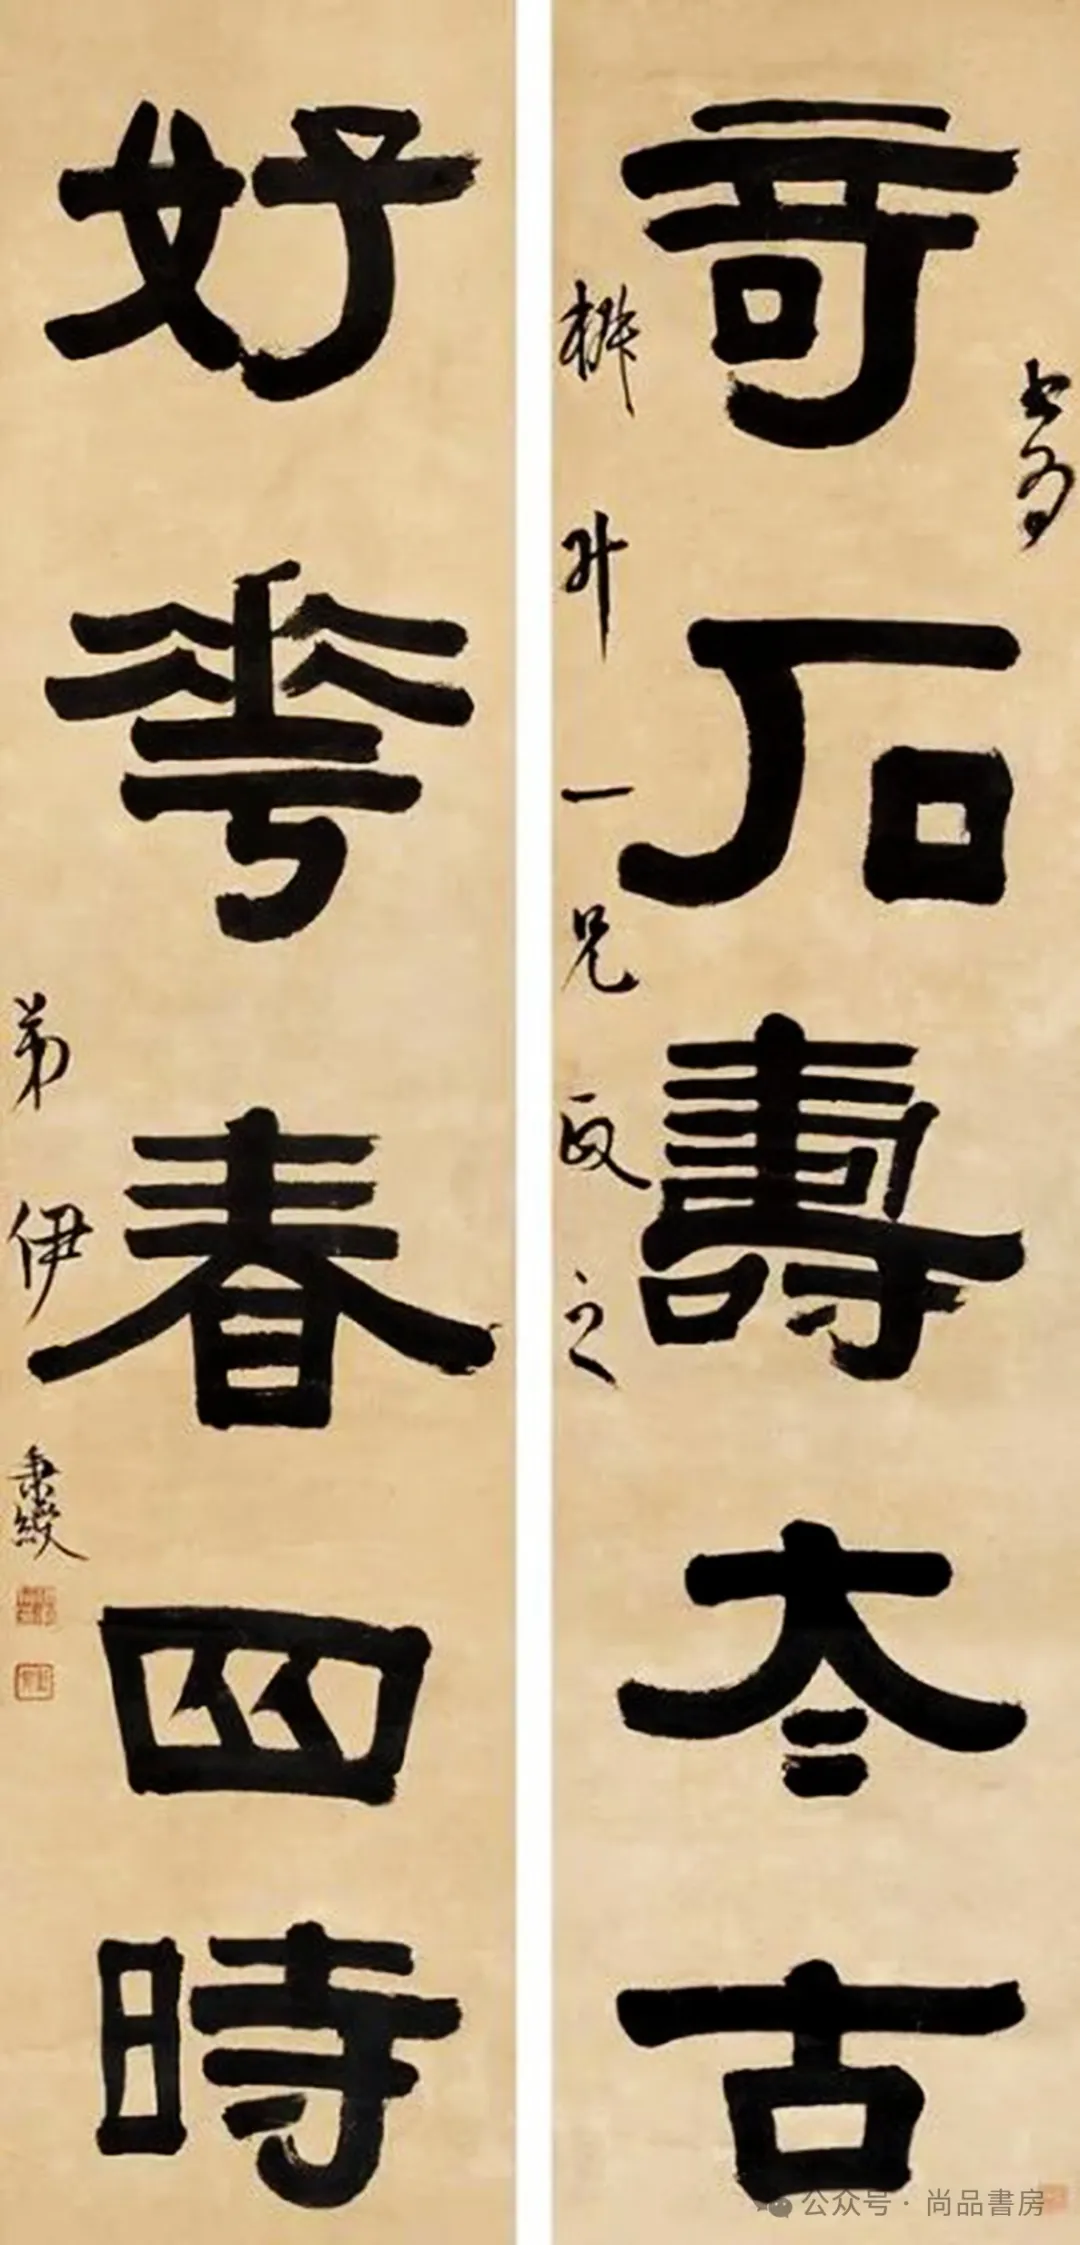 書為
奇石壽夳古
升一兄政之
好華春四時
弟伊秉綬
公众号 · 尚品書房